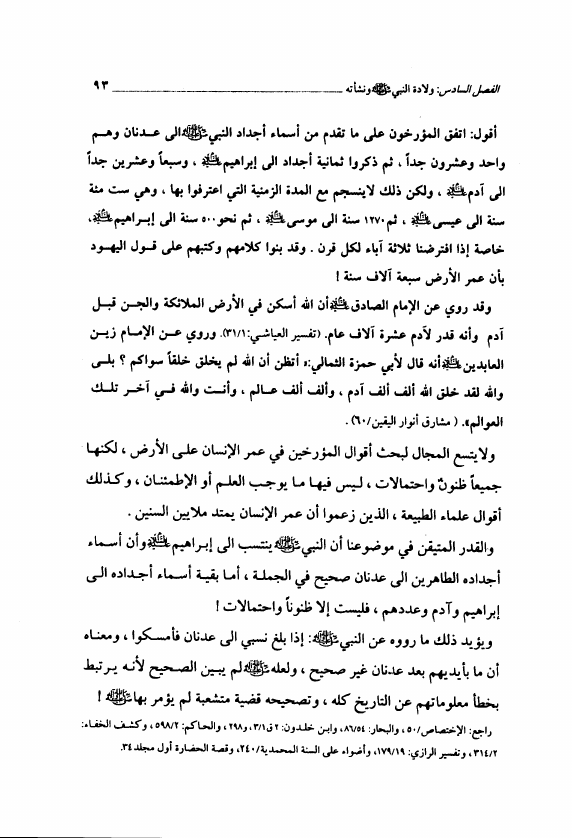 الفصل السادس: ولادة النبي ﷺ ونشأته ــــــــــــــــــــــــــــــــــــــــ ٩٣
أقول: اتفق المؤرخون على ما تقدم من أسماء أجداد النبي ﷺ الى عدنان وهم
واحد وعشرون جداً ، ثم ذكروا ثمانية أجداد الى إبراهيم عليه السلام ، وسبعاً وعشرين جداً
الى آدم عليه السلام ، ولكن ذلك لاينسجم مع المدة الزمنية التي اعترفوا بها ، وهي ست مئة
سنة الى عيسى عليه السلام ، ثم ١٢٧٠ سنة الى موسى عليه السلام ، ثم نحو ٥٠٠ سنة الى إبراهيم عليه السلام ،
خاصة إذا افترضنا ثلاثة آباء لكل قرن . وقد بنوا كلامهم وكتبهم على قول اليهود
بأن عمر الأرض سبعة آلاف سنة !
وقد روي عن الإمام الصادق عليه السلام أن الله أسكن في الأرض الملائكة والجن قبل
آدم وأنه قدر لآدم عشرة آلاف عام. (تفسير العياشي:٣١/١). وروي عن الإمام زين
العابدين عليه السلام أنه قال لأبي حمزة الثمالي:« أتظن أن الله لم يخلق خلقاً سواكم ؟ بلى
والله لقد خلق الله ألف ألف آدم ، وألف ألف عالم ، وأنت والله في آخر تلك
العوالم». ( مشارق أنوار اليقين/٦٠) .
ولايتسع المجال لبحث أقوال المؤرخين في عمر الإنسان على الأرض ، لكنها
جميعاً ظنونٌ واحتمالات ، ليس فيها ما يوجب العلم أو الإطمئنان ، وكذلك
أقوال علماء الطبيعة ، الذين زعموا أن عمر الإنسان يمتد ملايين السنين .
والقدر المتيقن في موضوعنا أن النبي ﷺ ينتسب الى إبراهيم عليه السلام وأن أسماء
أجداده الطاهرين الى عدنان صحيح في الجملة ، أما بقية أسماء أجداده الى
إبراهيم وآدم وعددهم ، فليست إلا ظنوناً واحتمالات !
ويؤيد ذلك ما رووه عن النبي ﷺ: إذا بلغ نسبي الى عدنان فأمسكوا ، ومعناه
أن ما بأيديهم بعد عدنان غير صحيح ، ولعله ﷺ لم يبين الصحيح لأنه يرتبط
بخطأ معلوماتهم عن التاريخ كله ، وتصحيحه قضية متشعبة لم يؤمر بها ﷺ !
راجع: الإختصاص/٥٠، والبحار: ٨٦/٥٤، وابن خلدون: ٢ق٣/١، و٢٩٨، والحاكم: ٥٩٨/٢، وكشف الخفاء:
٣١٤/٢، وتفسير الرازي: ١٧٩/١٩، وأضواء على السنة المحمدية/٢٤٠، وقصة الحضارة أول مجلد ٣٤.